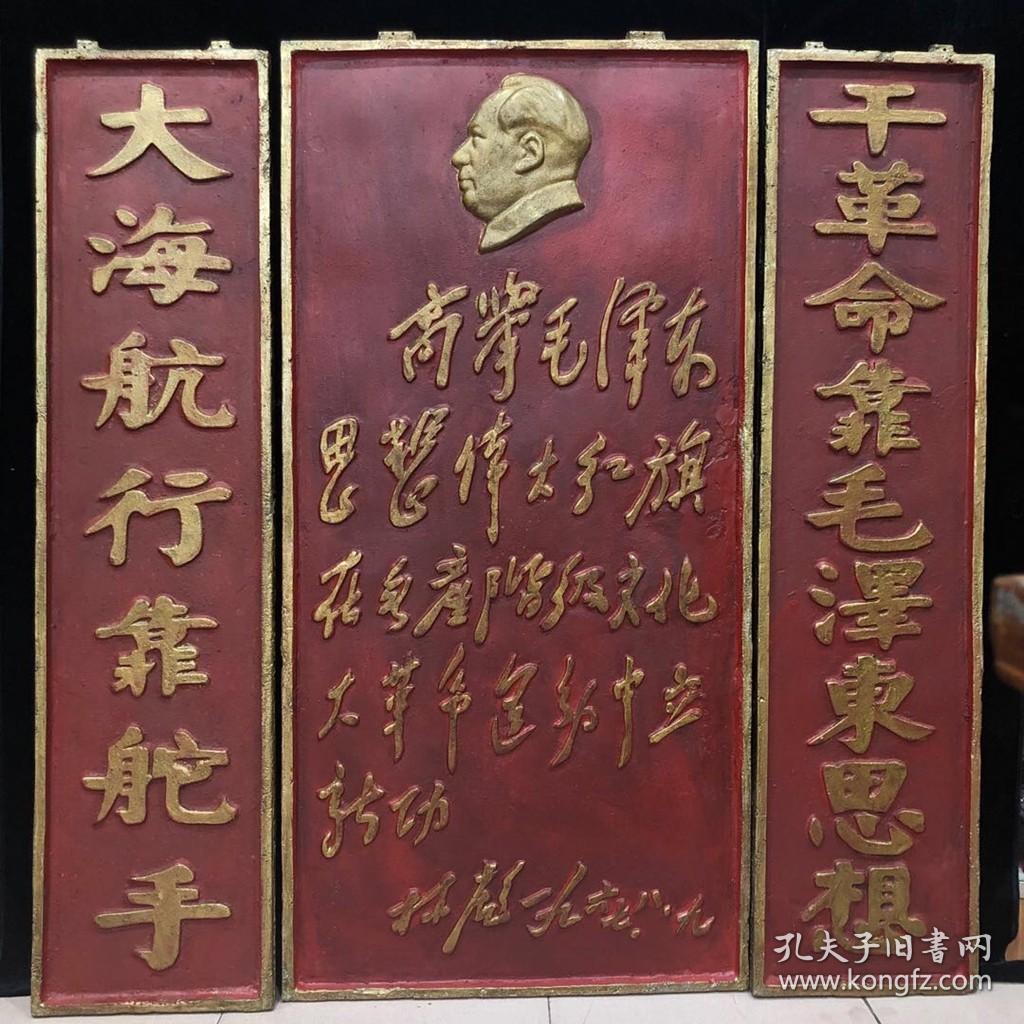 大海航行靠舵手
高举毛泽东
思想伟大红旗
在无产阶级文化
大革命运动中立
新功
林彪 一九六八.九
干革命靠毛澤東思想
孔夫子旧書网
www.kongfz.com